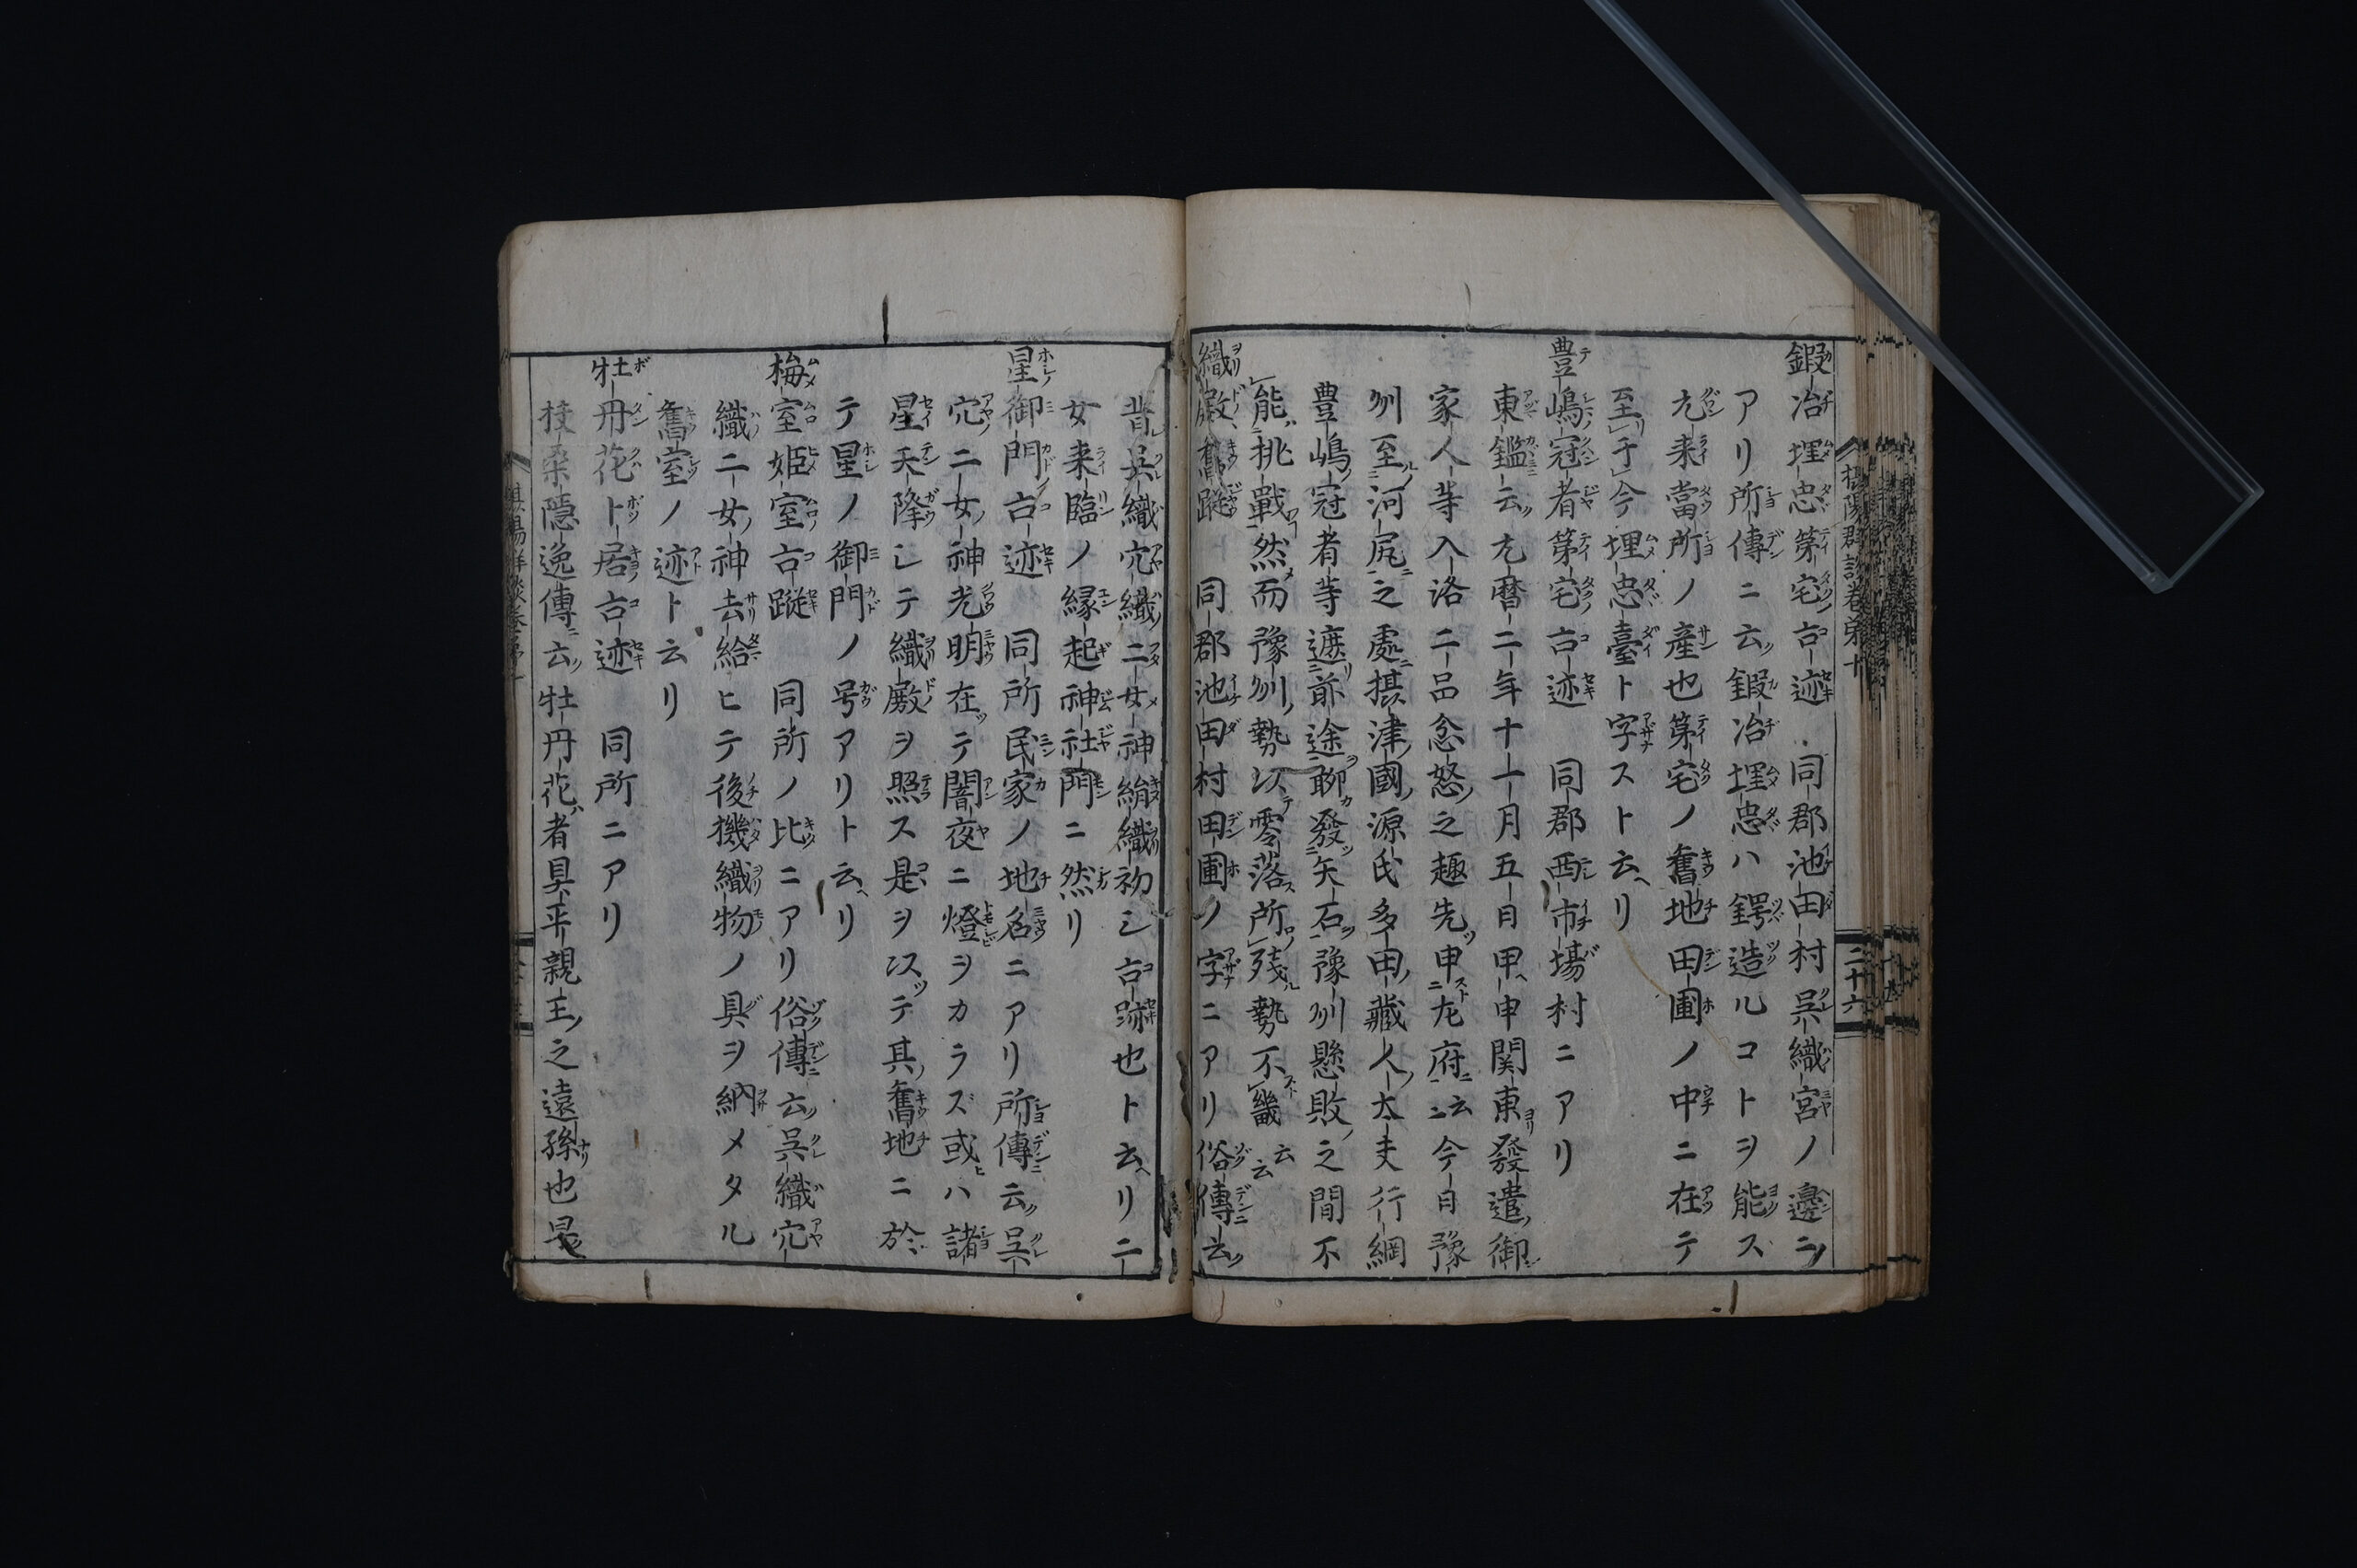 鍜冶埋忠第宅古迹 同郡池田村呉織宮ノ邊ニ
アリ所傳ニ云鍜冶埋忠ハ鍔造ルコトヲ能ス
尢来當所ノ産也第宅ノ舊地田圃ノ中ニ在テ
至于今埋忠臺ト字スト云リ
豊嶋冠者第宅古迹 同郡西市場村ニアリ
東鑑云尢暦二年十一月五日甲申関東發遣御
家人等入洛二品忿怒之趣先申尢府云云今日豫
州至河尻之處摂津國源氏多田藏人大夫行綱
豊嶋冠者等遮前途聊發矢石豫州懸敗之間不
能挑戰然而豫州勢以零落所残勢不畿云云
織殿舊蹤 同郡池田村田圃ノ字ニアリ俗傳云
昔呉織穴織二女神絹織初シ古跡也ト云リ二
女来臨ノ縁起神社門ニ然リ
星御門古迹 同所民家ノ地名ニアリ所傳云呉
穴二女神光明在テ闇夜ニ燈ヲカラズ或ハ諸
星天降シテ織殿ヲ照ス是ヲ以テ其舊地ニ於
テ星ノ御門ノ号アリト云リ
梅室姫室古蹤 同所ノ比ニアリ俗傳云呉織穴
織二女神去給ヒテ後機織物ノ具ヲ納メタル
舊室ノ迹ト云リ
牡丹花卜居古迹 同所ニアリ
扶桑隠逸傳云牡丹花者具平親王之遠孫也早
摂陽群談巻第十
二十六